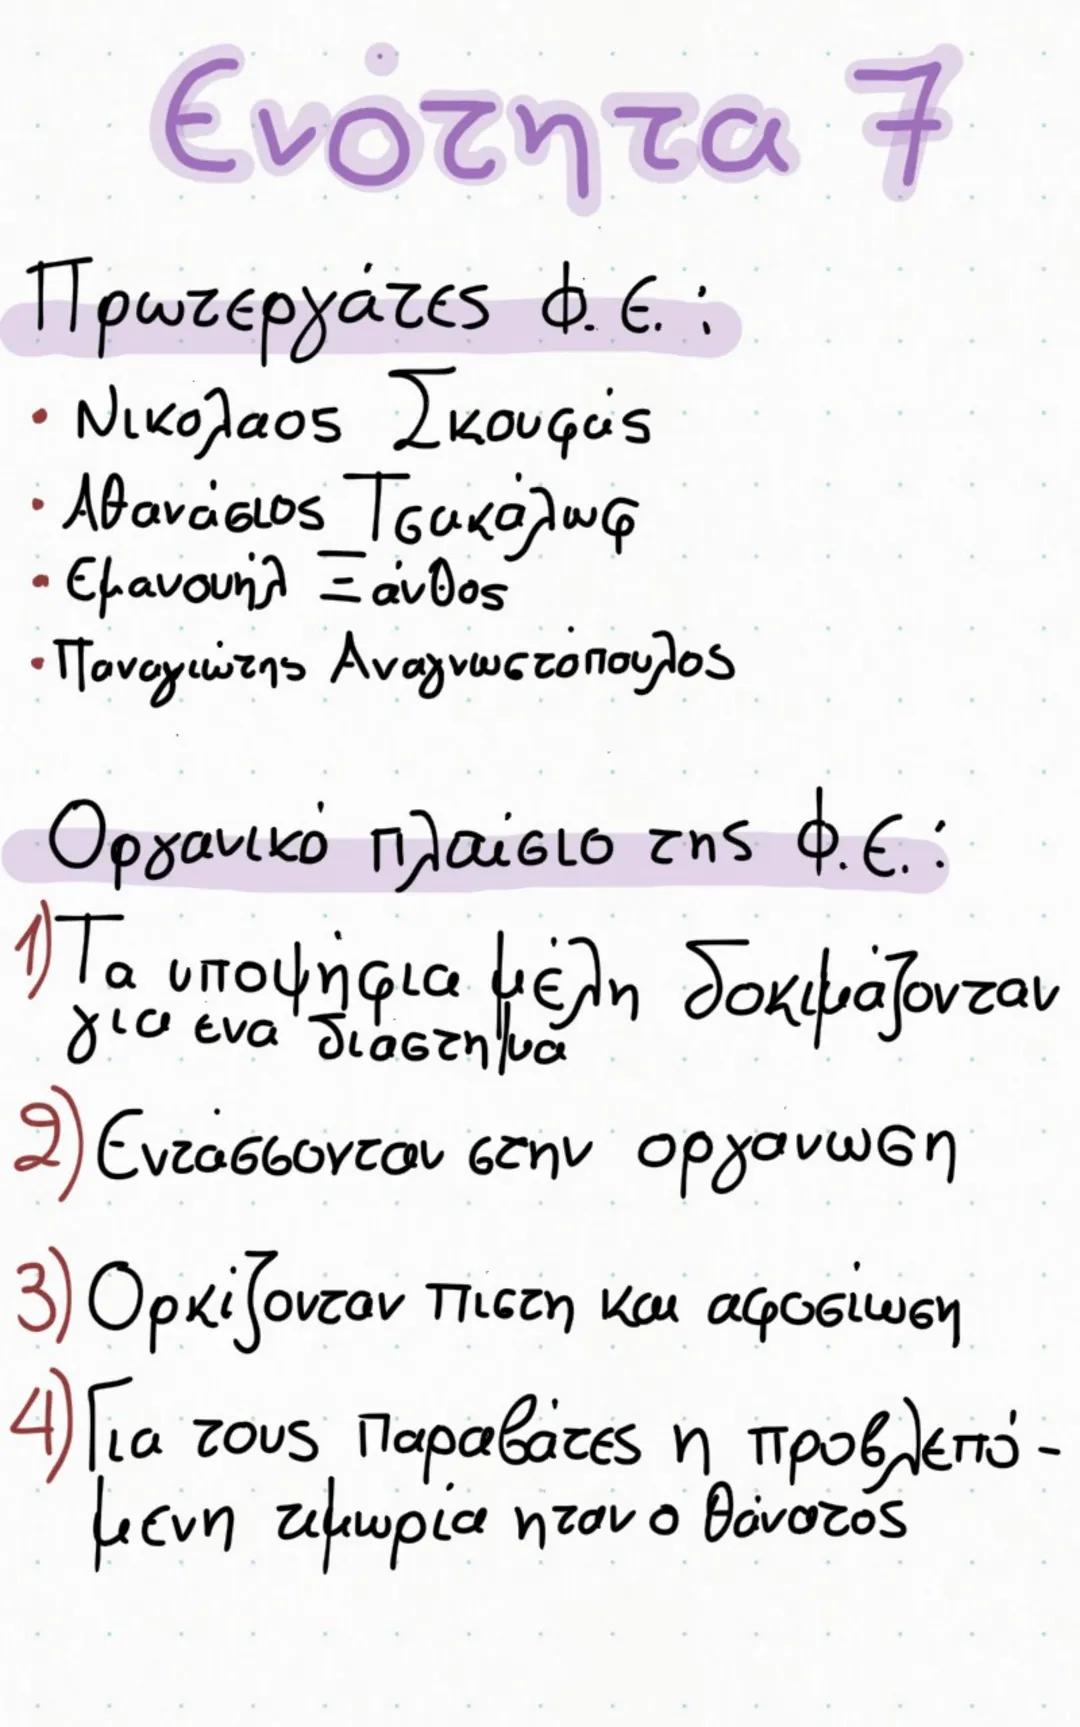 Ενότητα 7
Πρωτεργάτες Φ. Ε. :
• Νικολαος Σκουφάς
• Αθανάσιος Τσακάλωφ
• Εμανουήλ Ξάνθος
• Παναγιώτης Αναγνωστόπουλος
Οργανικό πλαίσιο της Φ. Ε. :
1) Τα υποψήφια μέλη δοκιμάζονταν
για ενα διαστημα
2) Εντάσσονταν στην οργανωση
3) Ορκίζονταν πιστη και αφοσίωση
4) Για τους παραβάτες η προβλεπό-
μενη τιμωρία ηταν ο θάνατος